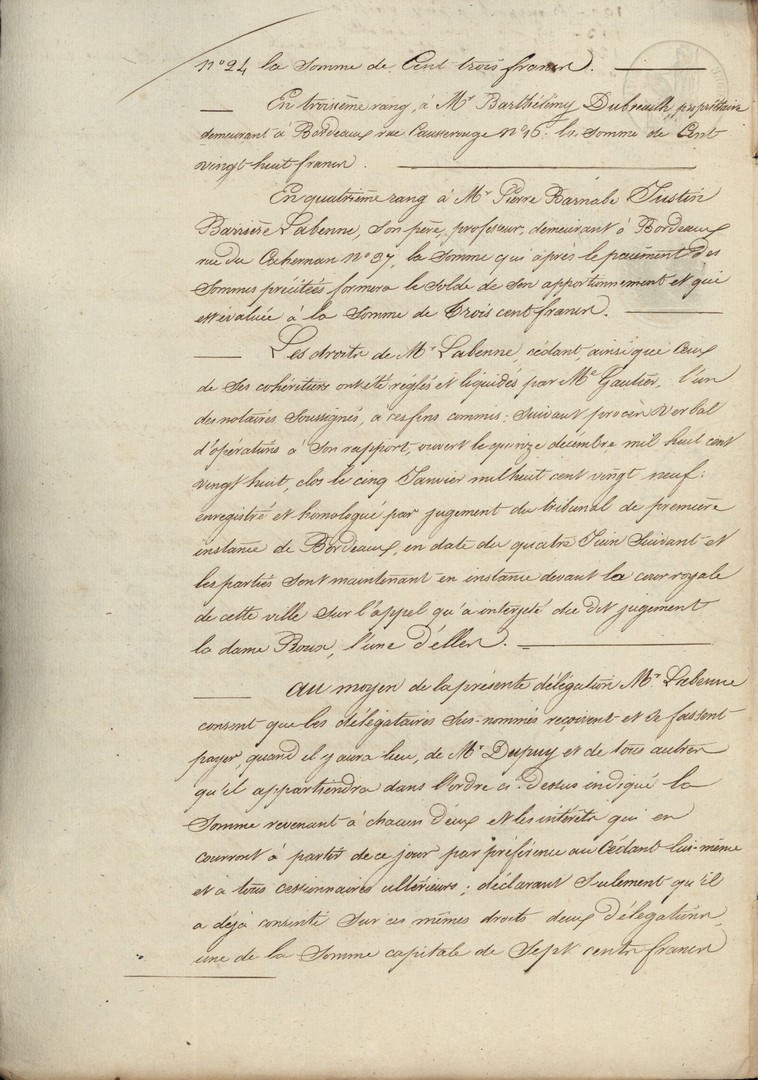 n° 24 la somme de Cent trois francs.
En troisième rang, à Mr Barthélémy Dubreuilh, propriétaire
demeurant à Bordeaux rue Causserouge n° 16. la somme de Cent
vingt huit francs.
En quatrième rang à Mr Pierre Barnabé Justin
Barrière Labenne, son père, professeur, demeurant à Bordeaux
rue du Cahernan n° 37, la somme qui après le paiement des
sommes précitées formera le solde de son apportionnement et qui
est évaluée à la somme de Trois cent francs.
Les droits de Mr Labenne, cédant, ainsi que ceux
de ses cohéritiers ont été réglés et liquidés par Me Gautier, l'un
des notaires soussignés, à ces fins commis: suivant procès verbal
d'opérations à son rapport, ouvert le quinze décembre mil huit cent
vingt huit, clos le cinq Janvier mil huit cent vingt neuf:
enregistré et homologué par jugement du tribunal de première
instance de Bordeaux, en date du quatre Juin suivant et
les parties sont maintenant en instance devant la cour royale
de cette ville sur l'appel qu'a interjeté du dit jugement
la dame Roux, l'une d'elles.
au moyen de la présente délégation Mr Labenne
consent que les délégataires sus-nommés reçoivent et se fassent
payer, quand il y aura lieu, de Mr Dupuy et de tous autres
qu'il appartiendra dans l'ordre ci-dessus indiqué la
somme revenant à chacun d'eux et les intérêts qui en
courront à partir de ce jour par préférence au cédant lui-même
et à tous cessionnaires ultérieurs; déclarant seulement qu'il
a déjà consenti sur ces mêmes droits deux délégations,
une de la somme capitale de Sept cents francs